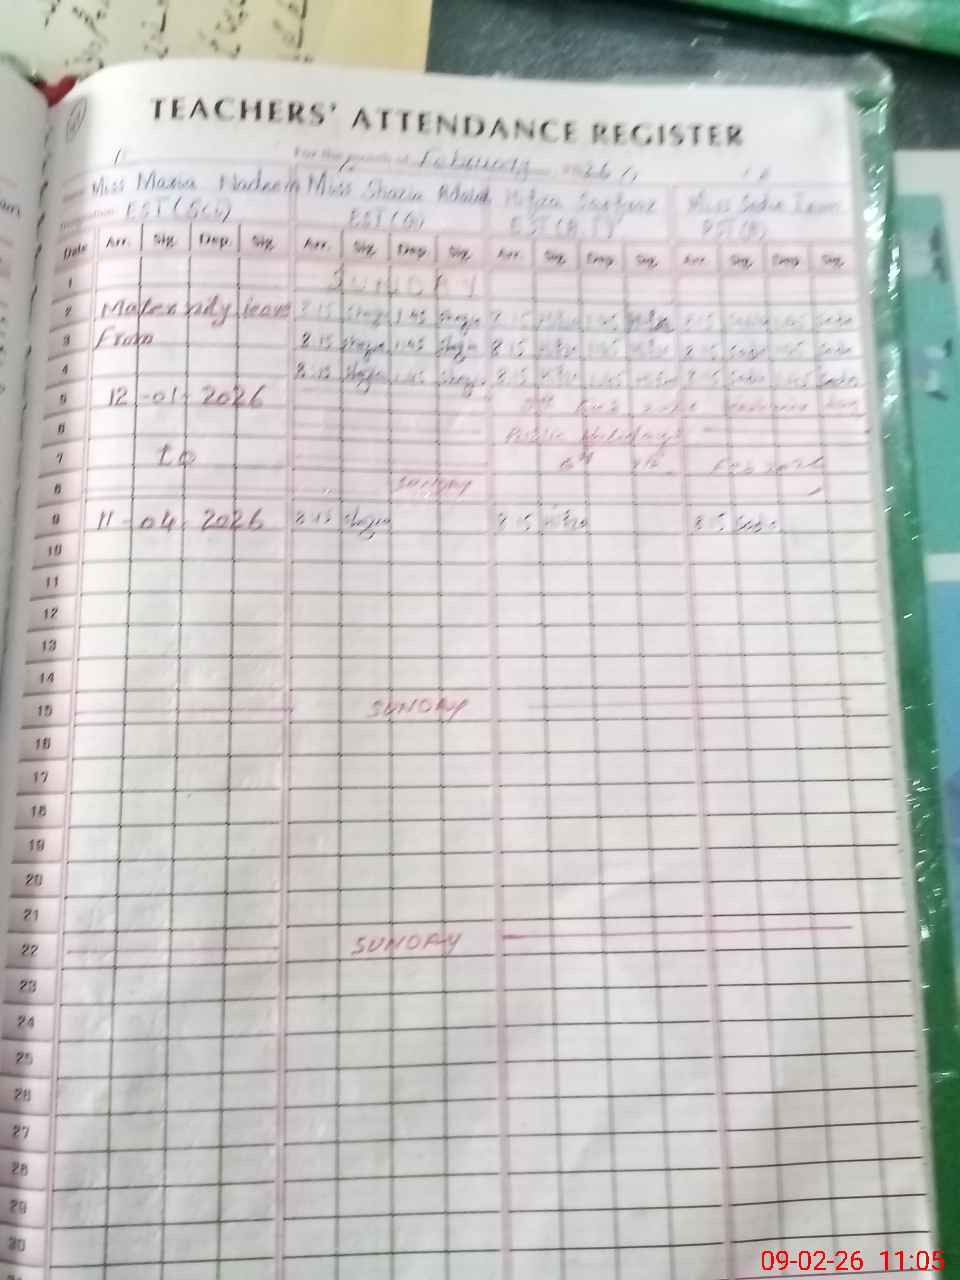 TEACHERS' ATTENDANCE REGISTER
For the month of February 26
Miss Maria Nadeem Miss Shazia Miss Sadia
EST(Sci) EST(G) PST(B)
Date Arr. Sig. Dep. Sig. Arr. Sig. Dep. Sig. Arr. Sig. Dep. Sig. Arr. Sig. Dep. Sig.
1 SUNDAY
2 Maternity leave 8:15 Shazia 1:45 Shazia 8:15 1:45 8:15 Sadia 1:45 Sadia
3 From 8:15 Shazia 1:45 Shazia 8:15 1:45 8:15 Sadia 1:45 Sadia
4 8:15 Shazia 1:45 Shazia 8:15 1:45 8:15 Sadia 1:45 Sadia
5 12-01-2026
6 Public Holidays
7 to Feb 2026
8 SUNDAY
9 11-04-2026 8:15 Shazia 8:15 8:15 Sadia
10
11
12
13
14
15 SUNDAY
16
17
18
19
20
21
22 SUNDAY
23
24
25
26
27
28
29
30
09-02-26 11:05